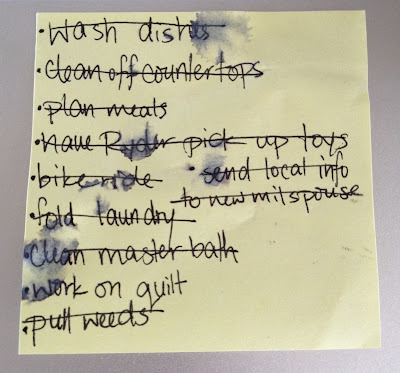 • wash dishes
• clean off countertops
• plan meals
• have Ryder pick up toys
• bike ride
• send local info
to new milspouse
• fold laundry
• clean master bath
• work on quilt
• pull weeds